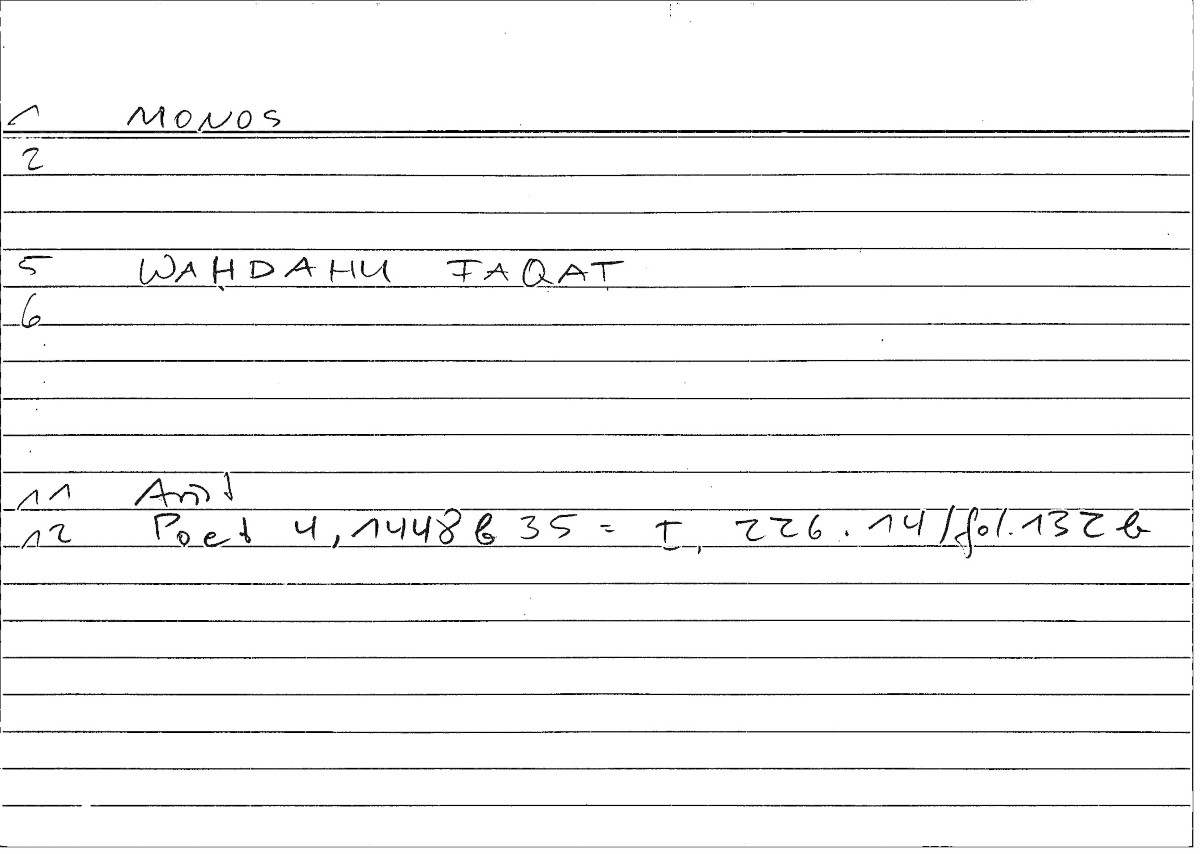 1 MONOS
2
5 WAḤDAHU FAQAṬ
6
11 Arist
12 Poet 4, 1448 b 35 = T, 226.14 / fol. 132 b